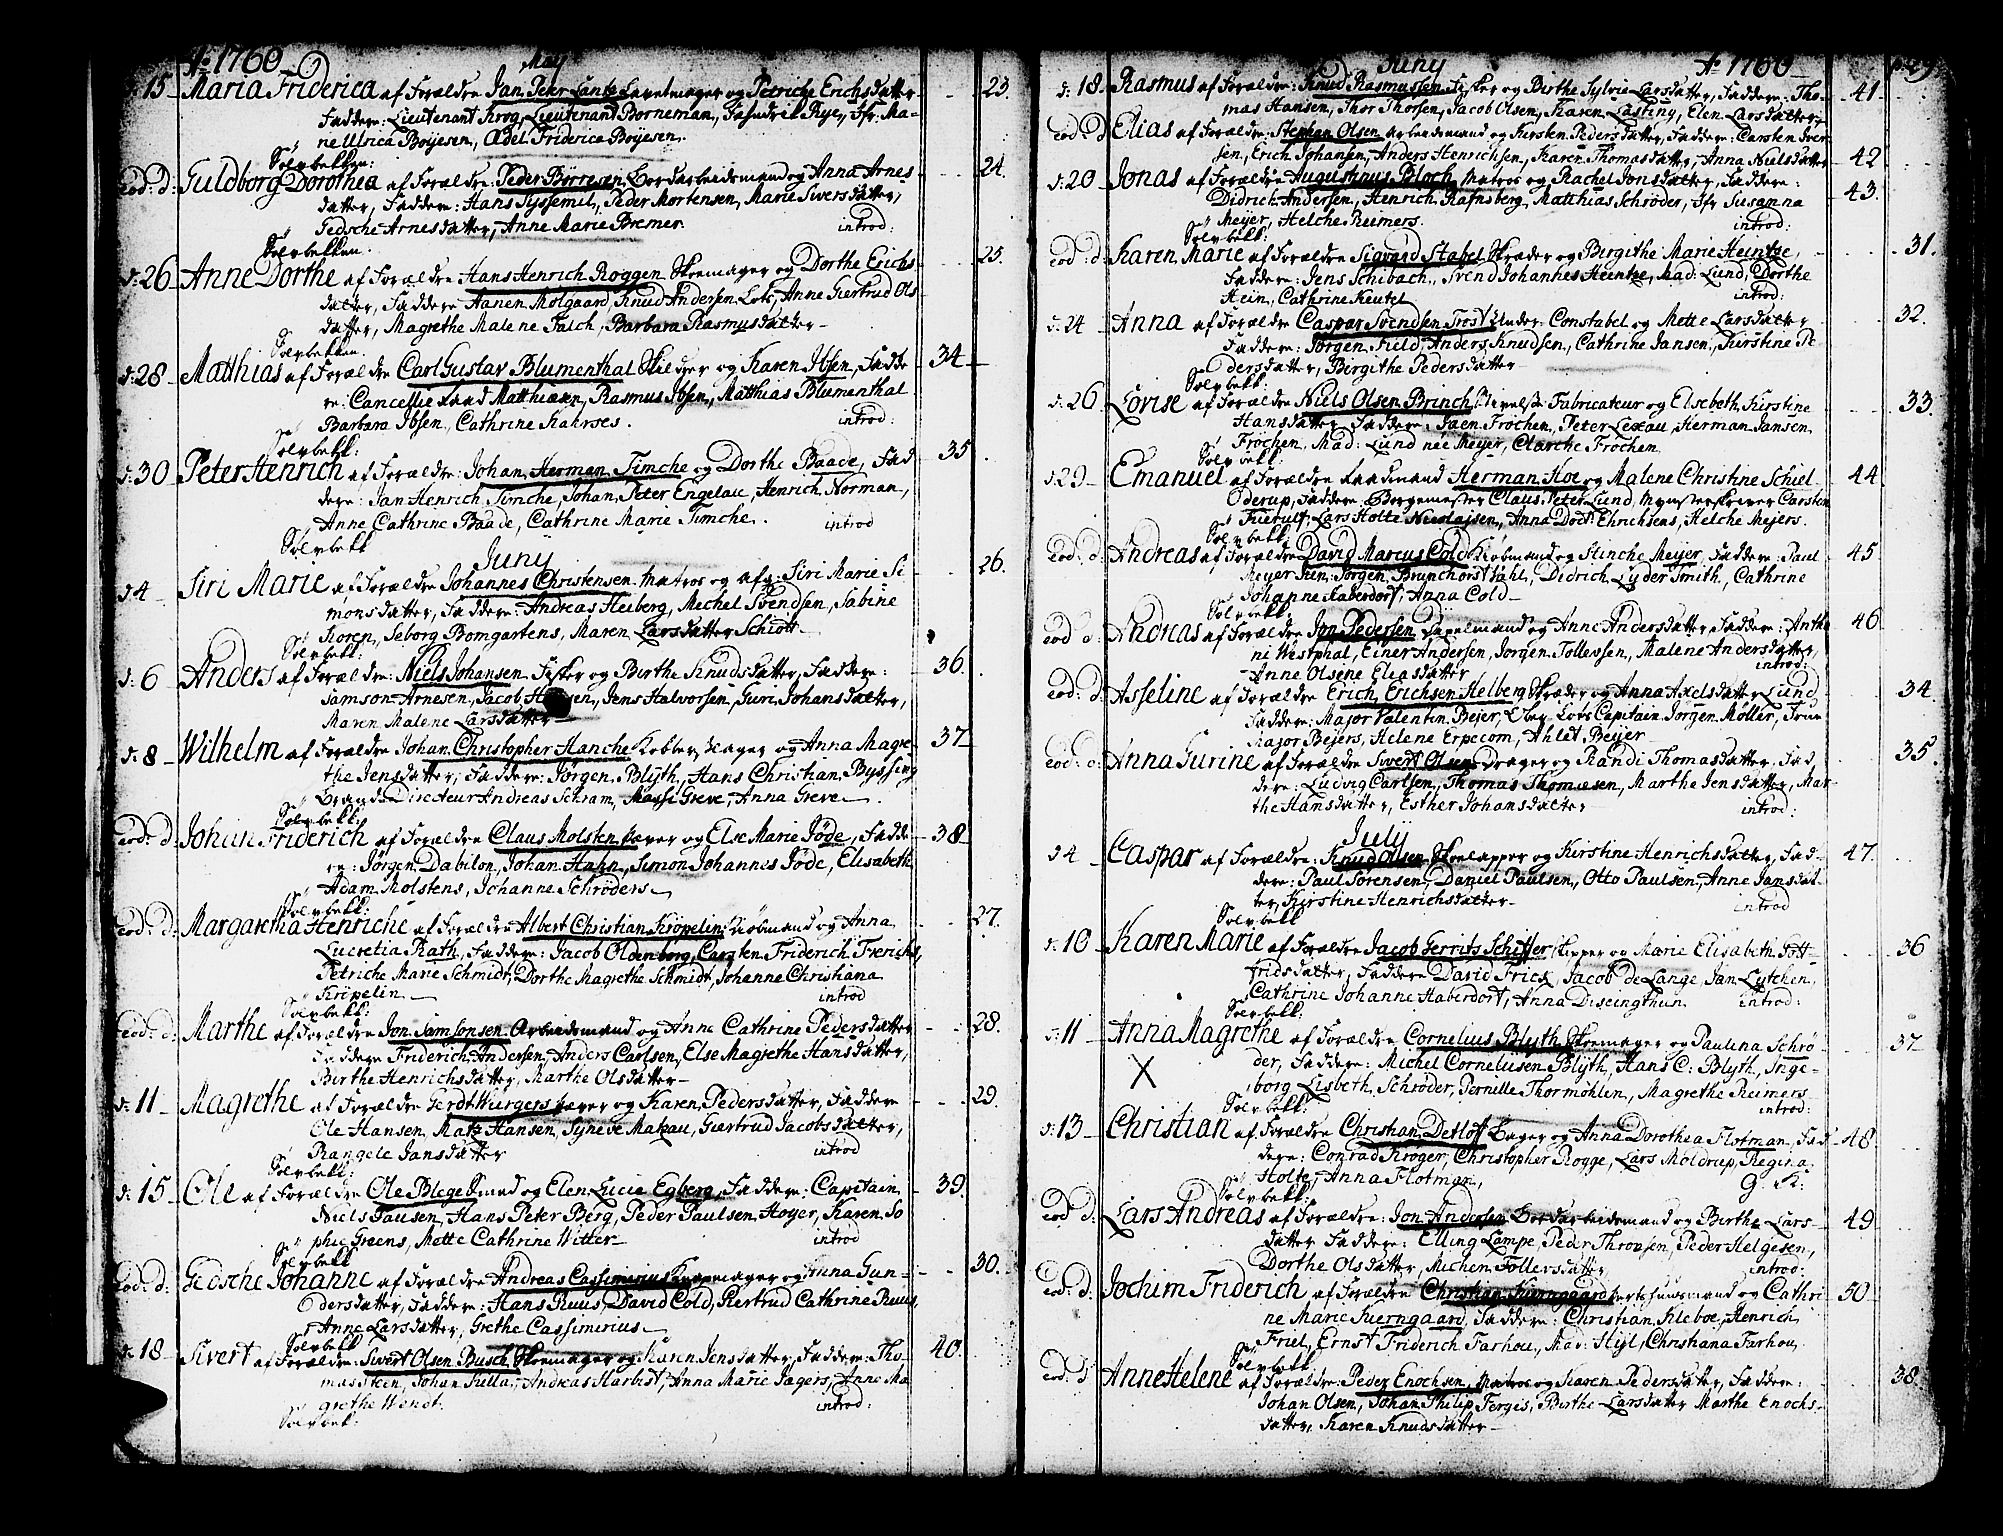 Ao 1760
May
d: 15 Maria Friderica af Forældre Jan Peter Lantz og Petriche Erichsdatter 23.
Faddere: Lieutenant Krog, Lieutenant Borneman, Rye, Jfr: Ma-
ne Ulrica Boyesen, Ædel Friderica Boyesen.
Sølvbekken:
eod: d: Guldborg Dorothea af Forældre Peder Børresen Bordarbeidsmand og Anna Arnes- 24.
datter, Faddere: Hans Syssemil, Peder Mortensen, Marie Siversdatter,
Sedsche Arnesdatter, Anne Marie Bremer. introd:
Sølvbekken.
d: 26 Anne Dorthe af Forældre Hans Henrich Roggen Skoemager og Dorthe Erichs- 25.
datter, Faddere Hanen Molgaard, Knud Andersen Lots, Anne Giertrud Ols
datter, Magrethe Malene Falch, Barbara Rasmusdatter
Sølvbekken.
d: 28 Matthias af Forældre Carl Gustav Blumenthal Skilder og Karen Ibsen, Fadde 34
re: Cancellie Raad Matthiæsen, Rasmus Ibsen, Matthias Blumenthal
Barbara Ibsen, Cathrine Kahrses. introd:
Sølvbekk:
d: 30 Peter Henrich af Forældre: Johan Herman Timche og Dorthe Baade, Fad 35
dere: Jan Henrich Timche, Johan Peter Engelau, Henrich Norman,
Anne Cathrine Baade, Cathrine Marie Timche. introd
Sølvbekk
Juny
d 4 Siri Marie af Forældre Johannes Christensen Matros og afg: Siri Marie Si 26.
monsdatter, Faddere: Andreas Heiberg, Mechel Svendsen, Sabine
Koren, Seborg Bomgartens, Maren Larsdatter Schiøtt
Sølvbekk:
d: 6 Anders af Forældre: Niels Johansen Fisker og Birthe Knudsdatter, Faddere: 36.
Samson Arnesen, Jacob Hansen, Jens Halvorsen, Guri Johansdatter,
Maren Malene Larsdatter
d: 8 Wilhelm af Forældre Johan Christopher Hanche Kobberslager og Anna Magre- 37
the Jensdatter, Faddere: Jørgen Blyth, Hans Christian Byssing
Brand-Directeur Andreas Schram, Greve, Anna Greve
Sølvbekk:
eod: d Johan Friderich af Forældre Claus Molsten og Else Marie Jøde, Fadde 38
re: Jørgen Dabilon, Johan Hahn, Simon Johannes Jøde, Elisabeth
Adam Molstens, Johanne Schrøders
Sølvbekk:
eod: d: Margaretha Henriche af Forældre Albert Christian Krøpelin Kiøbmand og Anna 27.
Lucretia Rath, Faddere: Jacob Oldenborg, Carsten Friderich Frerichs,
Petriche Marie Schmidt, Dorthe Magrethe Schmidt, Johanne Christiana
Krøpelin introd
Sølvbekk:
eod: d: Marthe af Forældre Jon Samsonsen Arbeidsmand og Anne Cathrine Pedersdatter 28.
Faddere Friderich Andersen, Anders Carlsen, Else Magrethe Hansdatter,
Birthe Henrichsdatter, Marthe Olsdatter
d: 11 Magrethe af Forældre Gerdt Wurgers og Karen Pedersdatter, Faddere 29.
Ole Hansen, Matz Hansen, Syneve Matzau, Giertrud Jacobsdatter,
Rangele Jansdatter introd
Sølvbekk:
d: 15 Ole af Forældre Ole Blege Smed og Elen Lucie Egberg, Faddere: Capitain 39.
Niels Dausen, Hans Peter Berg, Peder Paulsen Hoyer, Karen So
phie Greens, Mette Cathrine Witter introd
Sølvbekk
eod: d: Gedsche Johanne af Forældre Andreas Cassimerius og Anna Gun- 30.
dersdatter, Faddere: Hans Ruus, David Cold, Giertrud Cathrine Ruus,
Anne Larsdatter, Grethe Cassimerius
Sølvbekk
d: 18 Sivert af Forældre: Sivert Olsen Busch Skoemager og Karen Jensdatter, Faddere: Tho- 40.
mas Stein, Johan Fulla, Andreas Harbist, Anna Marie Jagers, Anne Ma
grethe Wendt. introd:
Sølvbek:
Juny
Ao 1760
d: 18. Rasmus af Forældre: Knud Rasmussen Fisker og Birthe Sylvia Larsdatter, Faddere: Tho- 41.
mas Hansen, Thor Thorsen, Jacob Olsen, Karen Lasting, Elen Larsdatter,
eod d Elias af Forældre: Stephen Olsen Arbeidsmand og Kirsten Pedersdatter, Faddere: Carsten Iver
sen, Erich Johansen, Anders Henrichsen, Karen Thomasdatter, Anna Nielsdatter 42
d: 20 Jonas af Forældre Augustinus Bloch Matros og Rachel Jonsdatter, Faddere: 43.
Didrich Andersen, Henrich Rafnsberg, Matthias Schrøder, Jfr Susanna
Meyer, Helche Reimers. introd:
Sølvbekk:
eod d: Karen Marie af Forældre Sigvard Stabel Skræder og Birgithe Marie Heintze, 31.
Faddere: Jens Schibach, Svend Johannes Heintze, Mad: Lund, Dorthe
Hein, Cathrine Keutel introd:
d: 24 Anna af Forældre Caspar Svendsen Trost Under-Constabel og Mette Larsdatter 32.
Faddere: Jørgen Field, Anders Knudsen, Cathrine Jansen, Kirstine Pe
dersdatter, Birgithe Pedersdatter
Sølvbekk:
d: 26 Lovise af Forældre Niels Olsen Brinch Fabricateur og Elsebeth Kirstine 33.
Hansdatter Faddere: Jaen Frochen, Peter Lexau, Herman Jansen
Frochen, Mad: Lund née Meyer, Clarche Frochen
Sølvbekk:
d 29 Emanuel af Forældre Raadmand Herman Hoe og Malene Christine Schiel 44.
derup, Faddere: Borgemester Claus Peter Lund, Mynsterskriver Carsten
Fuerulf, Lars Holte Nicolajsen, Anna Dort: Ehrichsens, Helche Mejers.
Sølvbekk:
eod: d: Andreas af Forældre David Marcus Cold Kiøbmand og Stinche Meyer, Faddere: Paul 45
Meyer Sen: Jørgen Brunchorst Vahl, Didrich Lyder Smith, Cathrine
Johanne Haberdorf, Anna Cold
Sølvbekk:
eod d: Andreas af Forældre Jon Pedersen og Anne Andersdatter Faddere: Antho 46
ni Westphal, Einer Andersen, Jørgen Tollevsen, Malene Andersdatter,
Anne Olsene Eliasdatter introd:
eod: d: Asseline af Forældre Erich Erichsen Helberg Skræder og Anna Axelsdatter Lund 34
Faddere: Major Valentin Bejer, Over Lots Capitain Jørgen Møller, Frue
Major Bejers, Helene Erpecom, Ahlet Bejer
eod: d: Anna Gurine af Forældre Sivert Olsen Drager og Randi Thomasdatter, Fad 35.
dere: Ludvig Carlsen, Thomas Thomæsen, Marthe Jensdatter, Mar
the Hansdatter, Esther Johansdatter introd:
July
d 4 Caspar af Forældre: Knud Olsen Skoelapper og Kirstine Henrichsdatter, Fad- 47.
dere: Paul Sørensen, Daniel Paulsen, Otto Paulsen, Anne Jansdat-
ter, Kirstine Henrichsdatter introd
Sølvbekk
d: 10 Karen Marie af Forældre Jacob Gerrits Schiffer Skipper og Marie Elisabeth Gott- 36
fridsdatter, Faddere David Fries, Jacob de Lange, Jan Lytchen,
Cathrine Johanne Haberdorf, Anna Diseingthun introd:
Sølvbekk:
d: 11 Anna Magrethe af Forældre Cornelius Blyth Skoemager og Paulina Schrø- 37
X der, Faddere: Michel Corneliusen Blyth, Hans C: Blyth, Inge-
borg Lisbeth Schrøder, Pernille Thormøhlin, Magrethe Reimers
Sølvbekk: introd:
d: 13 Christian af Forældre Christian Detloff Bager og Anna Dorothea Flotman, Fad 48.
dere: Conrad Krøger, Christopher Rogge, Lars Moldrup, Regina
Holte, Anna Flotman,
Sølvbekk:
eod d: Lars Andreas af Forældre: Jon Andersen Bordarbeidsmand og Birthe Lars- 49
datter Faddere: Elling Lampe, Peder Thronsen, Peder Helgesen,
Dorthe Olsdatter, Michen Tollevsdatter introd:
eod: d: Jochim Friderich af Forældre Christian Kierngaard Vertshuusmand og Cathri 50
ne Marie Kierngaard, Faddere: Christian Kileboe, Henrich
Friel, Ernst Friderich Farhou, Mad: Hiyl, Christiana Farhou
Sølvbekk:
eod: d Anne Helene af Forældre: Peder Enochsen Matros og Karen Pedersdatter, Faddere: 38
Johan Olsen, Johan Philip Fergis, Birthe Larsdatter Marthe Enochs-
datter, Karen Knudsdatter